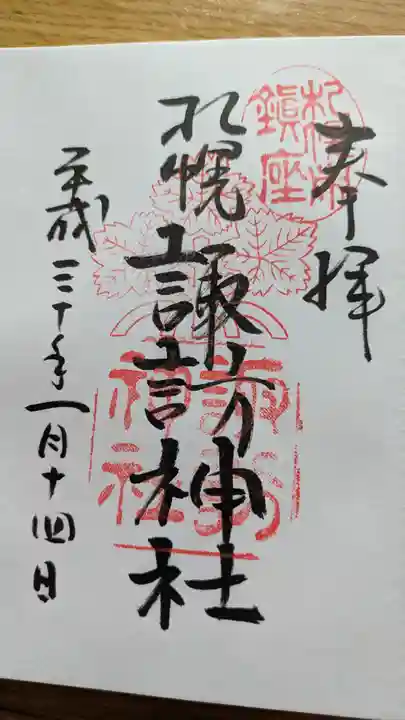 奉拝
札幌諏訪神社
平成三十年一月十四日
札幌市
鎮座
諏訪
神社